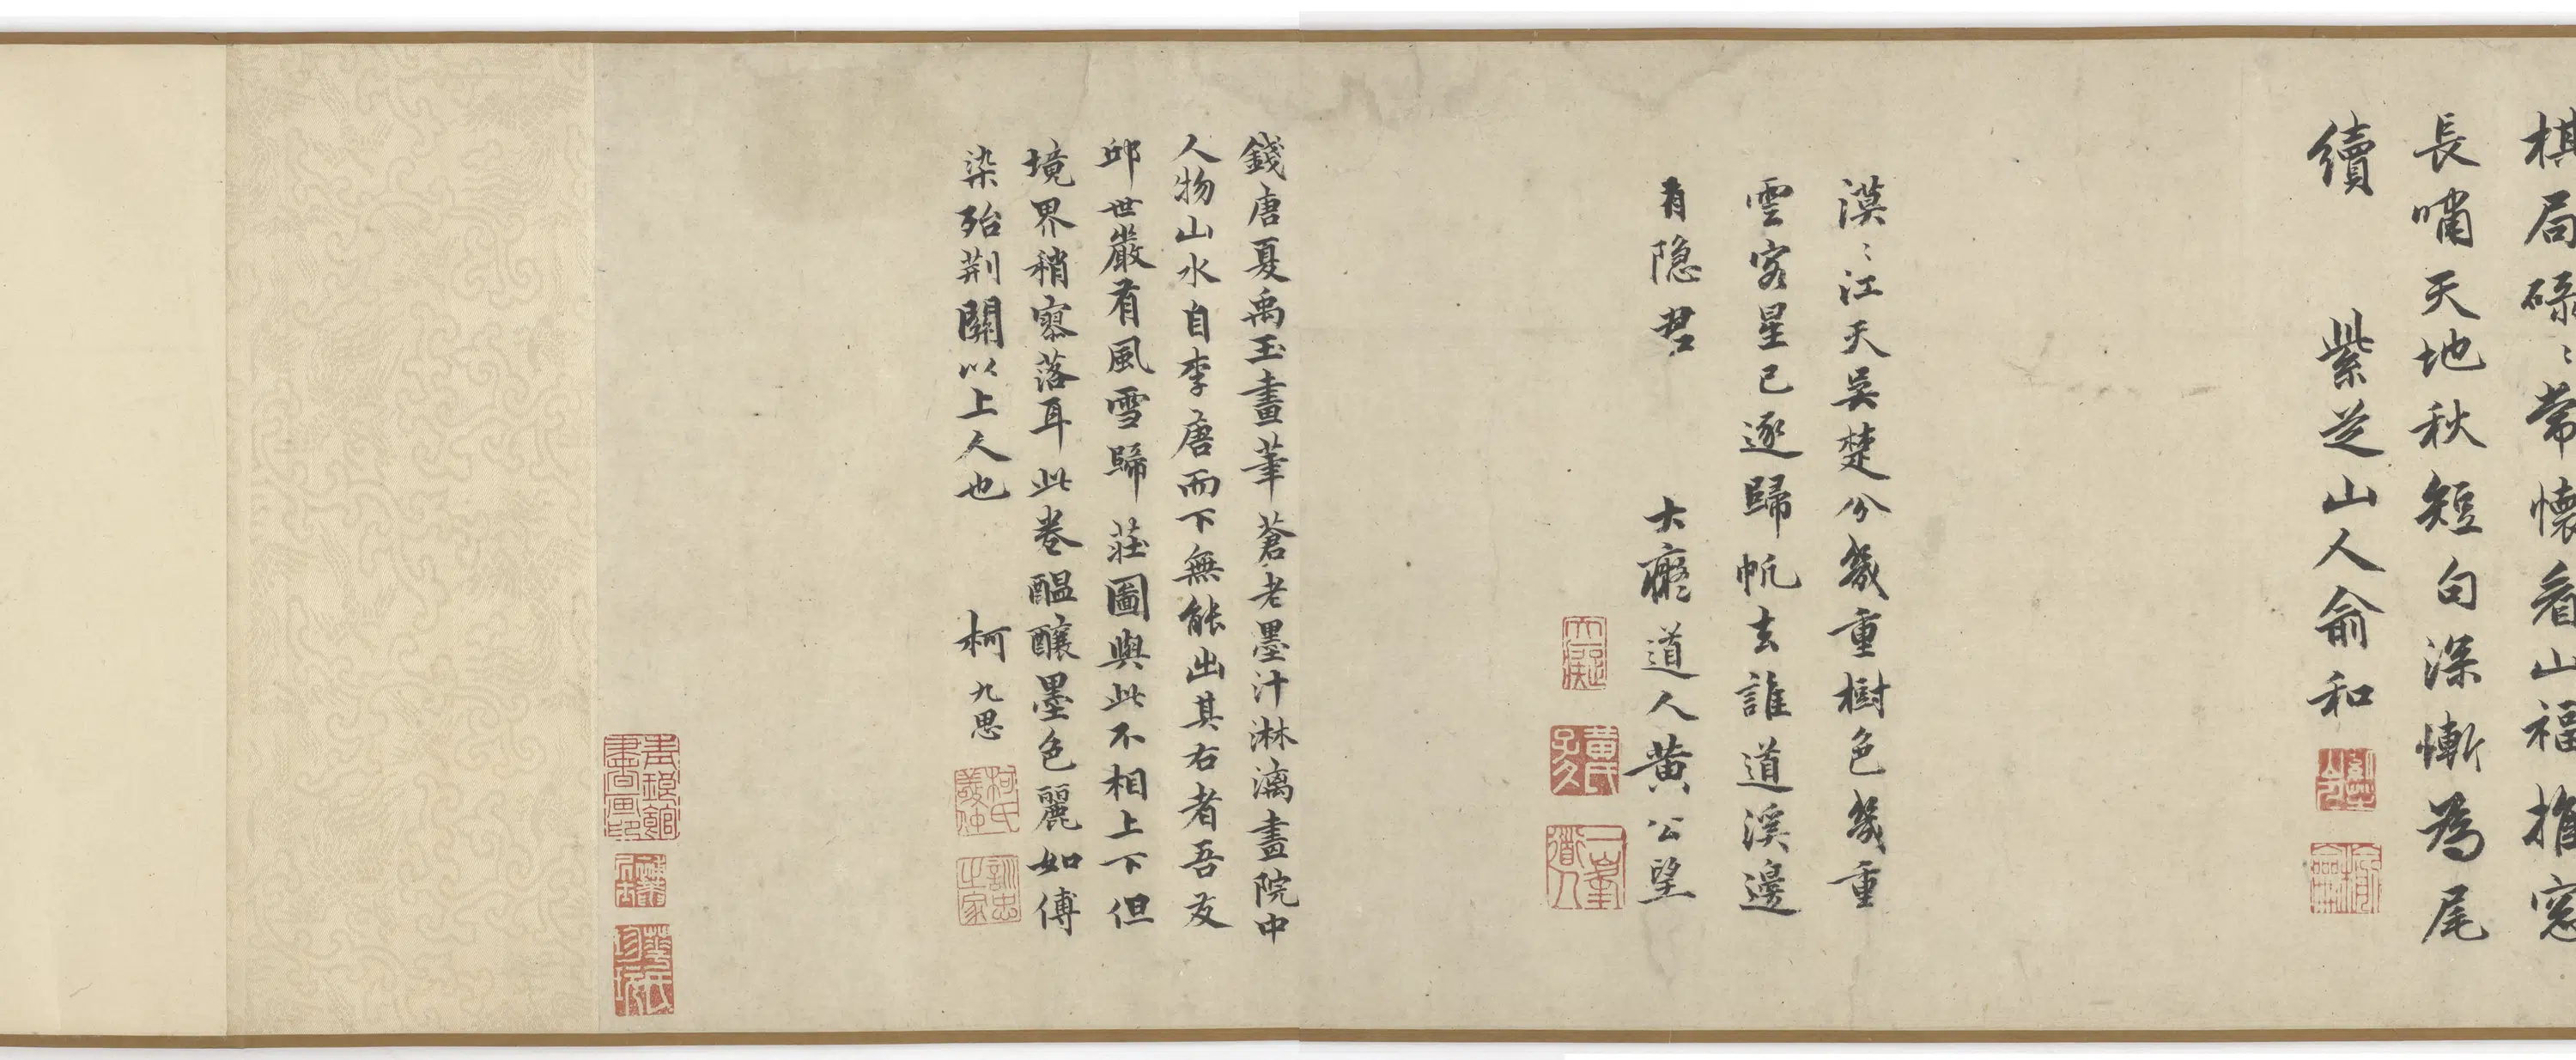 棋局碌〻常懷看山福推窓
長嘯天地秋短句深慚為尾
續 紫芝山人俞和
漠〻江天吳楚分幾重樹色幾重
雲客星已逐歸帆去誰道溪邊
有隐君 大癡道人黃公望
大癡
黃氏子久
一峯道人
錢唐夏禹玉畫筆蒼老墨汁淋漓畫院中
人物山水自李唐而下無能出其右者吾友
邱世嚴有風雪歸莊圖與此不相上下但
境界稍寥落耳此卷醖釀墨色麗如傅
染殆荆關以上人也 柯九思
柯氏敬仲
訓忠之家